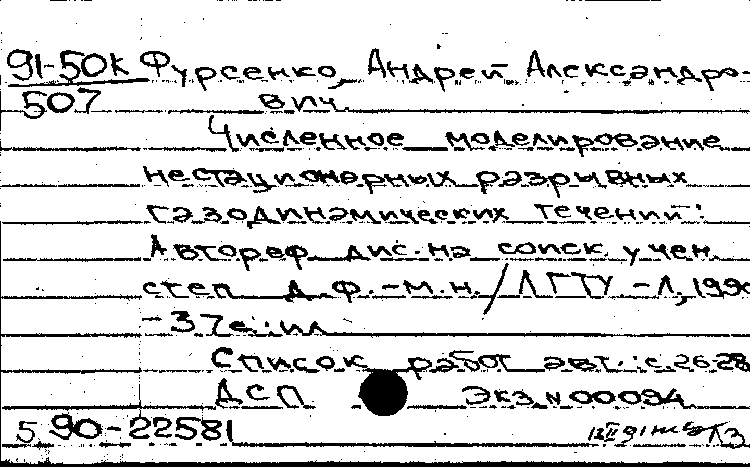 91-50к Фурсенко, Андрей Александро-
507 вич.
Численное моделирование
нестационарных разрывных
газодинамических течений:
Автореф. дис. на соиск. учен.
степ. д. ф.-м. н. / ЛГТУ -Л, 1990
-37с.: ил
Список работ авт.: с. 26-28
ДСП Экз N 00094
5 90-22581